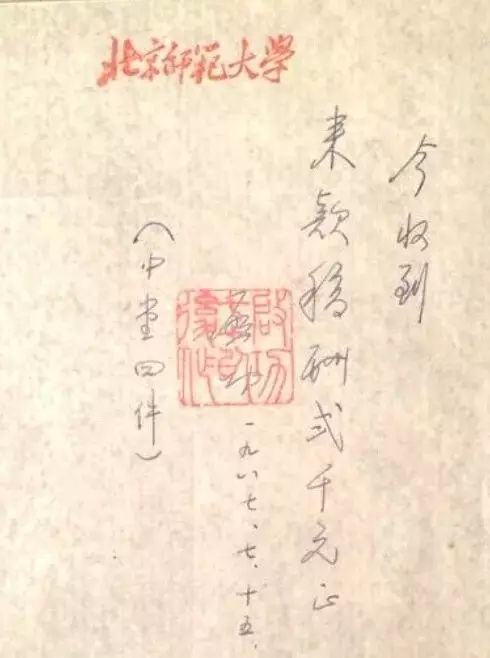 北京师範大學
今收到
来款稿酬弍千元正
启功
一九八七、七、十五、
（中堂四件）